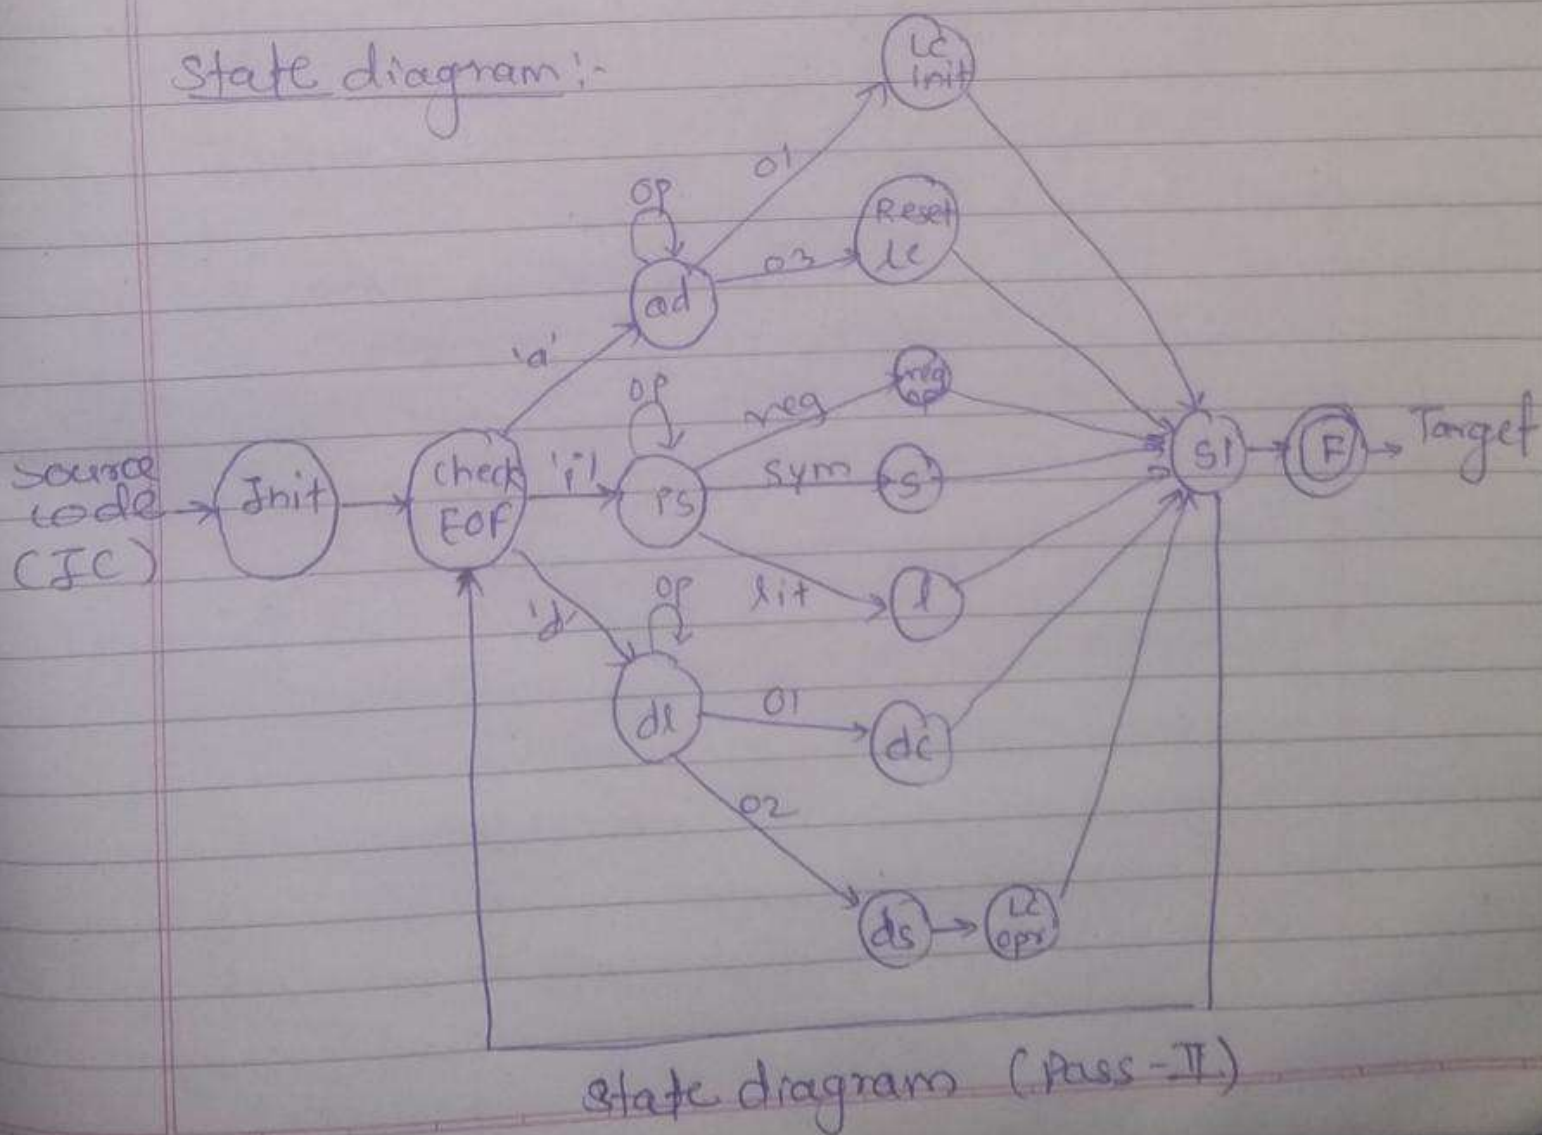 State diagram :-
LC
init
01
OP
Reset
lc
03
ad
'a'
OP
reg
reg
op
Source
code
(IC)
Init
Check
EOF
'i'
is
sym
S
S1
F
Target
OP
lit
l
'd'
dl
01
dc
02
ds
LC
opr
State diagram (Pass-II)